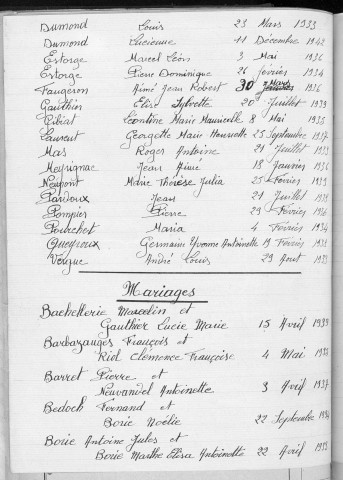 Dumond Louis 23 Mars 1933
Dumond Lucienne 11 Décembre 1942
Estorge Marcel Léon 3 Mai 1936
Estorge Pierre Dominique 26 février 1934
Faugeron Aimé Jean Robert 30 Mars 1936
Gauthier Elise Sylvette 20 Juillet 1939
Léontine Marie Mauricette 8 Mai 1936
Laurent Georgette Marie Henriette 25 Septembre 1937
Mas Roger Antoine 21 Juillet 1933
Meyrignac Jean Aimé 18 Janvier 1936
Neupont Marie Thérèse Julia 25 Février 1939
Pardoux Jean 21 Juillet
Pompier Pierre 29 Février 1936
Pourchet Maria 4 Février 1934
Queyroux Germaine Yvonne Antoinette 19 Février
Vergne André Louis 29 Aout
Mariages
Bachellerie Marcelin et
Gauthier Lucie Marie 15 Avril 1939
Barbazanges François et
Riol Clémence Françoise 4 Mai
Barret Pierre et
Neuvandel Antoinette 3 Avril 1937
Bedoch Fernand et
Borie Noélie 22 Septembre
Borie Antoine Jules et
Borie Marthe Elisa Antoinette 22 Avril